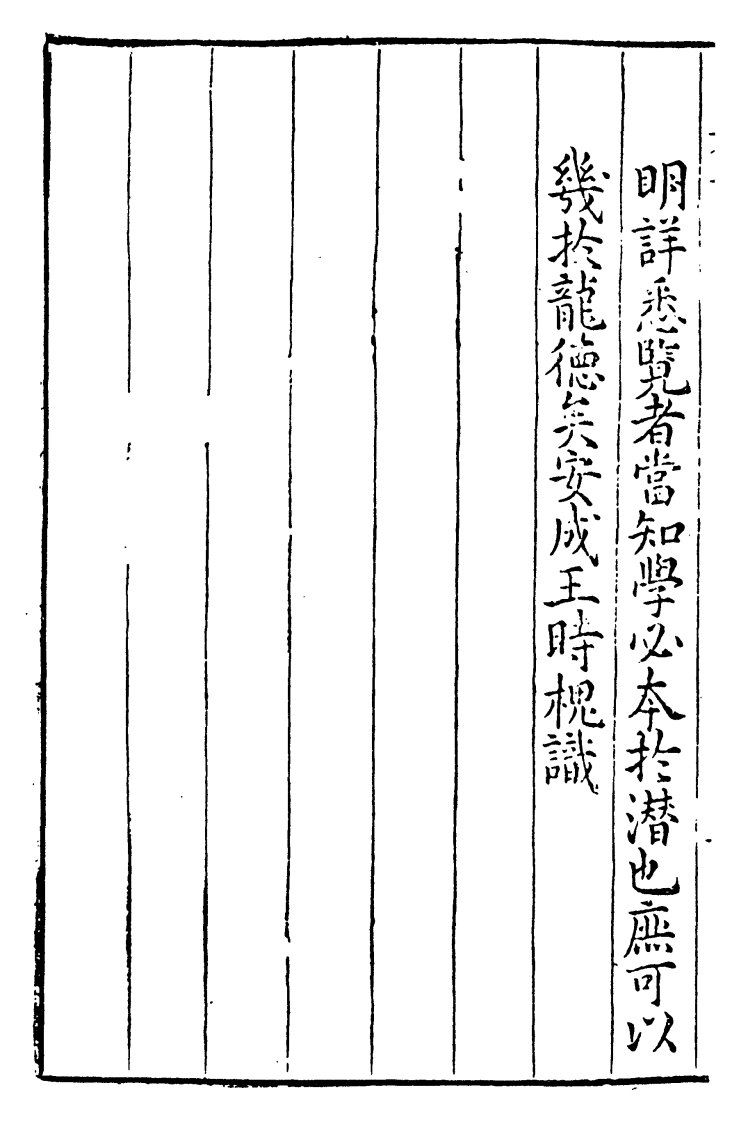 明詳悉覽者當知學必本於潛也庶可以
幾於龍德矣安成王時槐識